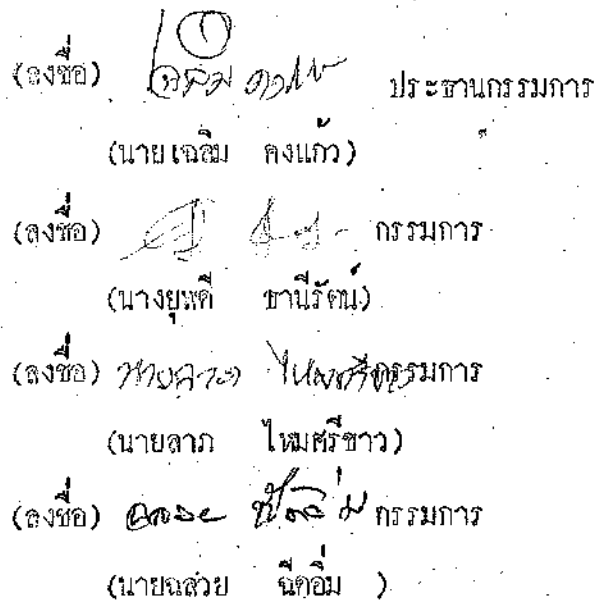 (ลงชื่อ) ประธานกรรมการ
(นายเฉลิม คงแก้ว)
(ลงชื่อ) กรรมการ
(นางยุพดี ธานีรัตน์)
(ลงชื่อ) นายลาภ ไหมศรีขาว กรรมการ
(นายลาภ ไหมศรีขาว)
(ลงชื่อ) กรรมการ
(นายฉลวย ฉีดอิ่ม )